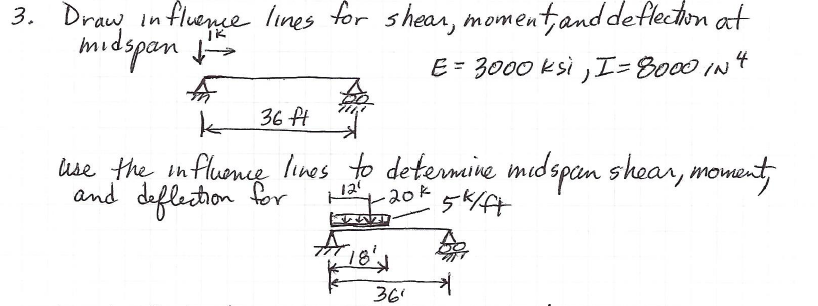 3. Draw influence lines for shear, moment, and deflection at
midspan
1K
E = 3000 ksi, I = 8000 IN⁴
36 ft
use the influence lines to determine midspan shear, moment,
and deflection for
12'
20 K
5 K/ft
18'
36'